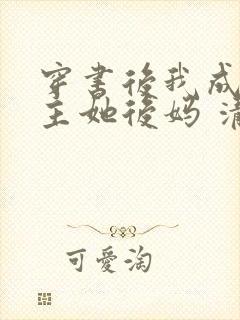 穿書後我成
主她後媽
可愛淘